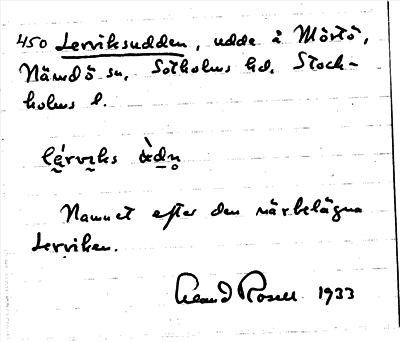 450 Lerviksudden, udde å Mörtö,
Nämdö sn, Sotholms hd, Stock-
holms l.
lę́rviks ùdn̥
Namnet efter den närbelägna
Lerviken.
Rosell 1933